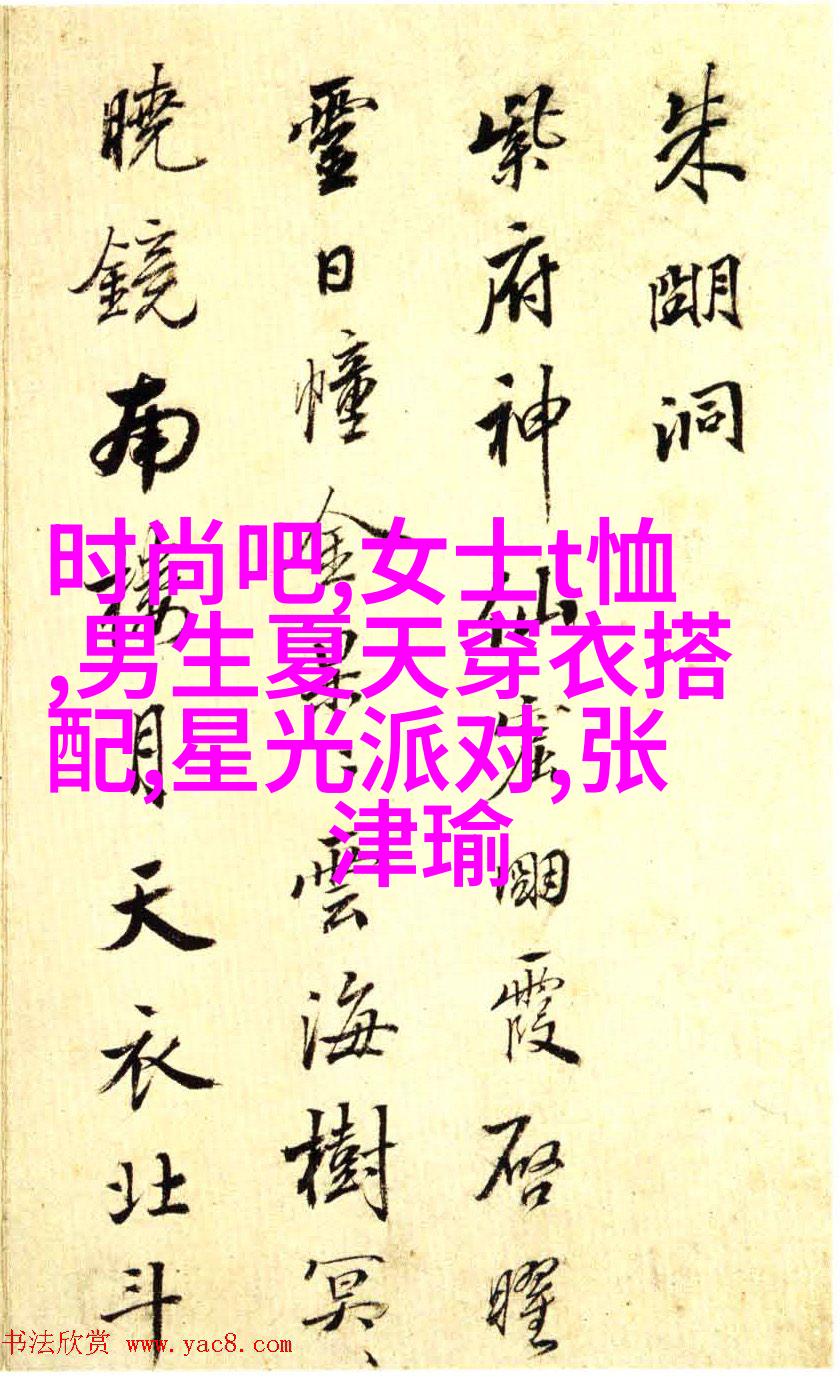 朱朙洞
紫府神仙窟朙霞啓曜
靈日幢金杲〻雲海樹冥〻
曉鏡南樓月天衣北斗
时尚吧,女士t恤
,男生夏天穿衣搭
配,星光派对,张
津瑜
书法欣赏 www.yac8.com